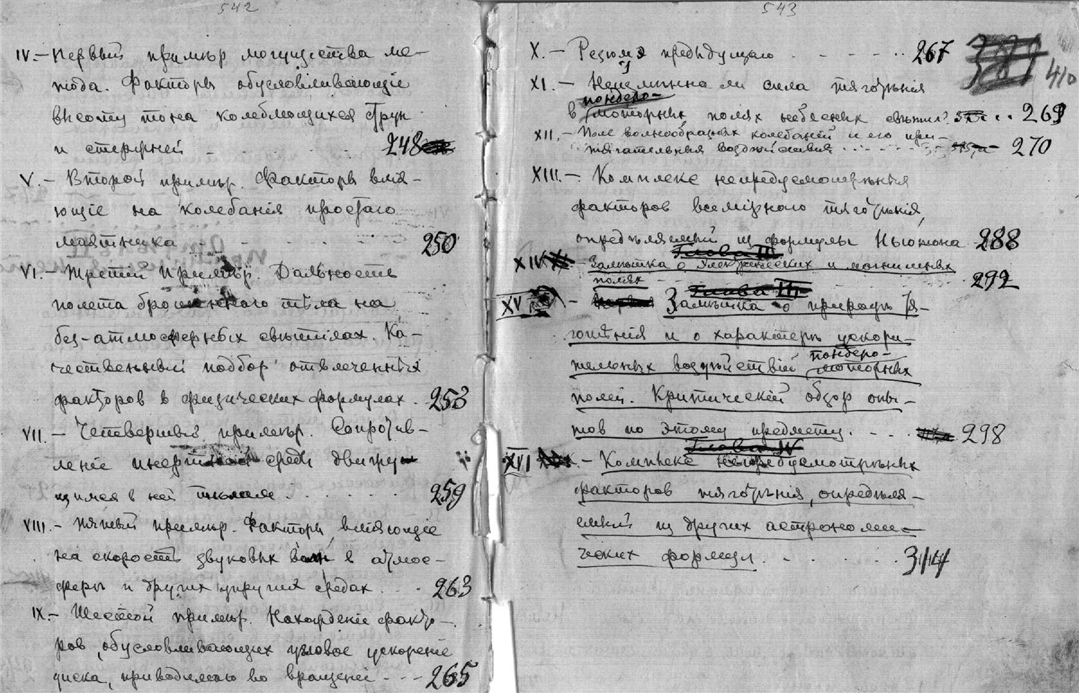 542
IV. — Первый примѣр могущества ме-
тода. Факторы обусловливающіе
высоту тона колеблющихся струн
и стержней 248
V. — Второй примѣр. Факторы влія-
ющіе на колебанія простого
маятника 250
VI. — Третій примѣр. Дальность
полета брошеннаго тѣла на
без-атмосферных свѣтилах. Ка-
чественный подбор отвлеченных
факторов в физических формулах. 253
VII. — Четвертый примѣр. Сопротив-
леніе инертной среды движу-
щимся в ней тѣлам 259
VIII. — Пятый примѣр. Факторы вліяющіе
на скорость звуковых волн в атмос-
ферѣ и других упругих средах 263
IX. — Шестой примѣр. Нахожденіе факто-
ров, обусловливающих угловое ускореніе
диска, приводимаго во вращеніе 265
543
X. — Резюме предыдущаго 267
410
XI. — Неизмѣнна ли сила тяготѣнія
в пондеро-моторных полях небесных свѣтил? 269
XII. — Поле волнообразных колебаній и его при-
тягательныя воздѣйствія 270
XIII. — Комплекс непредусмотрѣнных
факторов всемірнаго тяготѣнія,
опредѣляемый из формулы Ньютона 288
Глава III
XIV — Замѣтка о электрических и магнитных
полях 292
Глава III
XV — Замѣтка о природѣ тя-
готѣнія и о характерѣ ускори-
тельных воздѣйствій пондеро-моторных
полей. Критическій обзор опы-
тов по этому предмету. 298
Глава IV
XVI — Комплекс непредусмотрѣнных
факторов тяготѣнія, опредѣля-
емый из других астрономи-
ческих формул 314